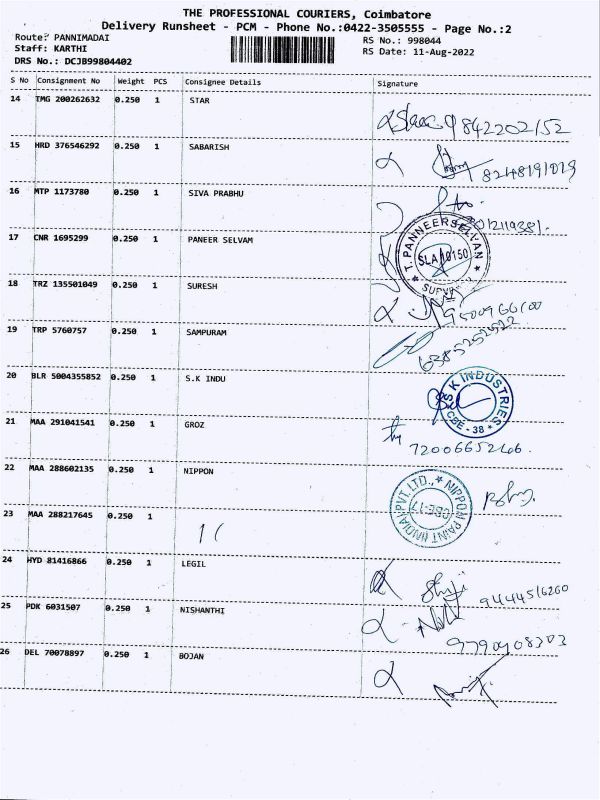 THE PROFESSIONAL COURIERS, Coimbatore
Delivery Runsheet - PCM - Phone No.:0422-3505555 - Page No.:2
Route: PANNIMADAI
RS No.: 998044
Staff: KARTHI
RS Date: 11-Aug-2022
DRS No.: DCJB99804402
S No Consignment No Weight PCS Consignee Details Signature
14 TMG 200262632 0.250 1 STAR 9842202152
15 HRD 376546292 0.250 1 SABARISH 8248191029
16 MTP 1173780 0.250 1 SIVA PRABHU
17 CNR 1695299 0.250 1 PANEER SELVAM
T. PANNEERSELVAN
SLA 10150
18 TRZ 135501049 0.250 1 SURESH
19 TRP 5760757 0.250 1 SAMPURAM
20 BLR 5004355852 0.250 1 S.K INDU
S K INDUSTRIES
CBE - 38
21 MAA 291041541 0.250 1 GROZ
7200665246.
22 MAA 288602135 0.250 1 NIPPON
NIPPON PAINT (INDIA) PVT. LTD.,
CBE-17
23 MAA 288217645 0.250 1
24 HYD 81416866 0.250 1 LEGIL
9444516260
25 PDK 6031507 0.250 1 NISHANTHI
26 DEL 70078897 0.250 1 BOJAN